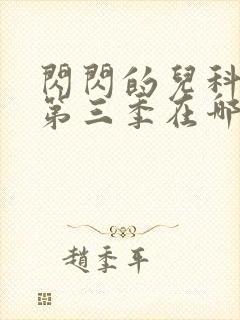 閃閃的兒科
第三季在哪
趙季平